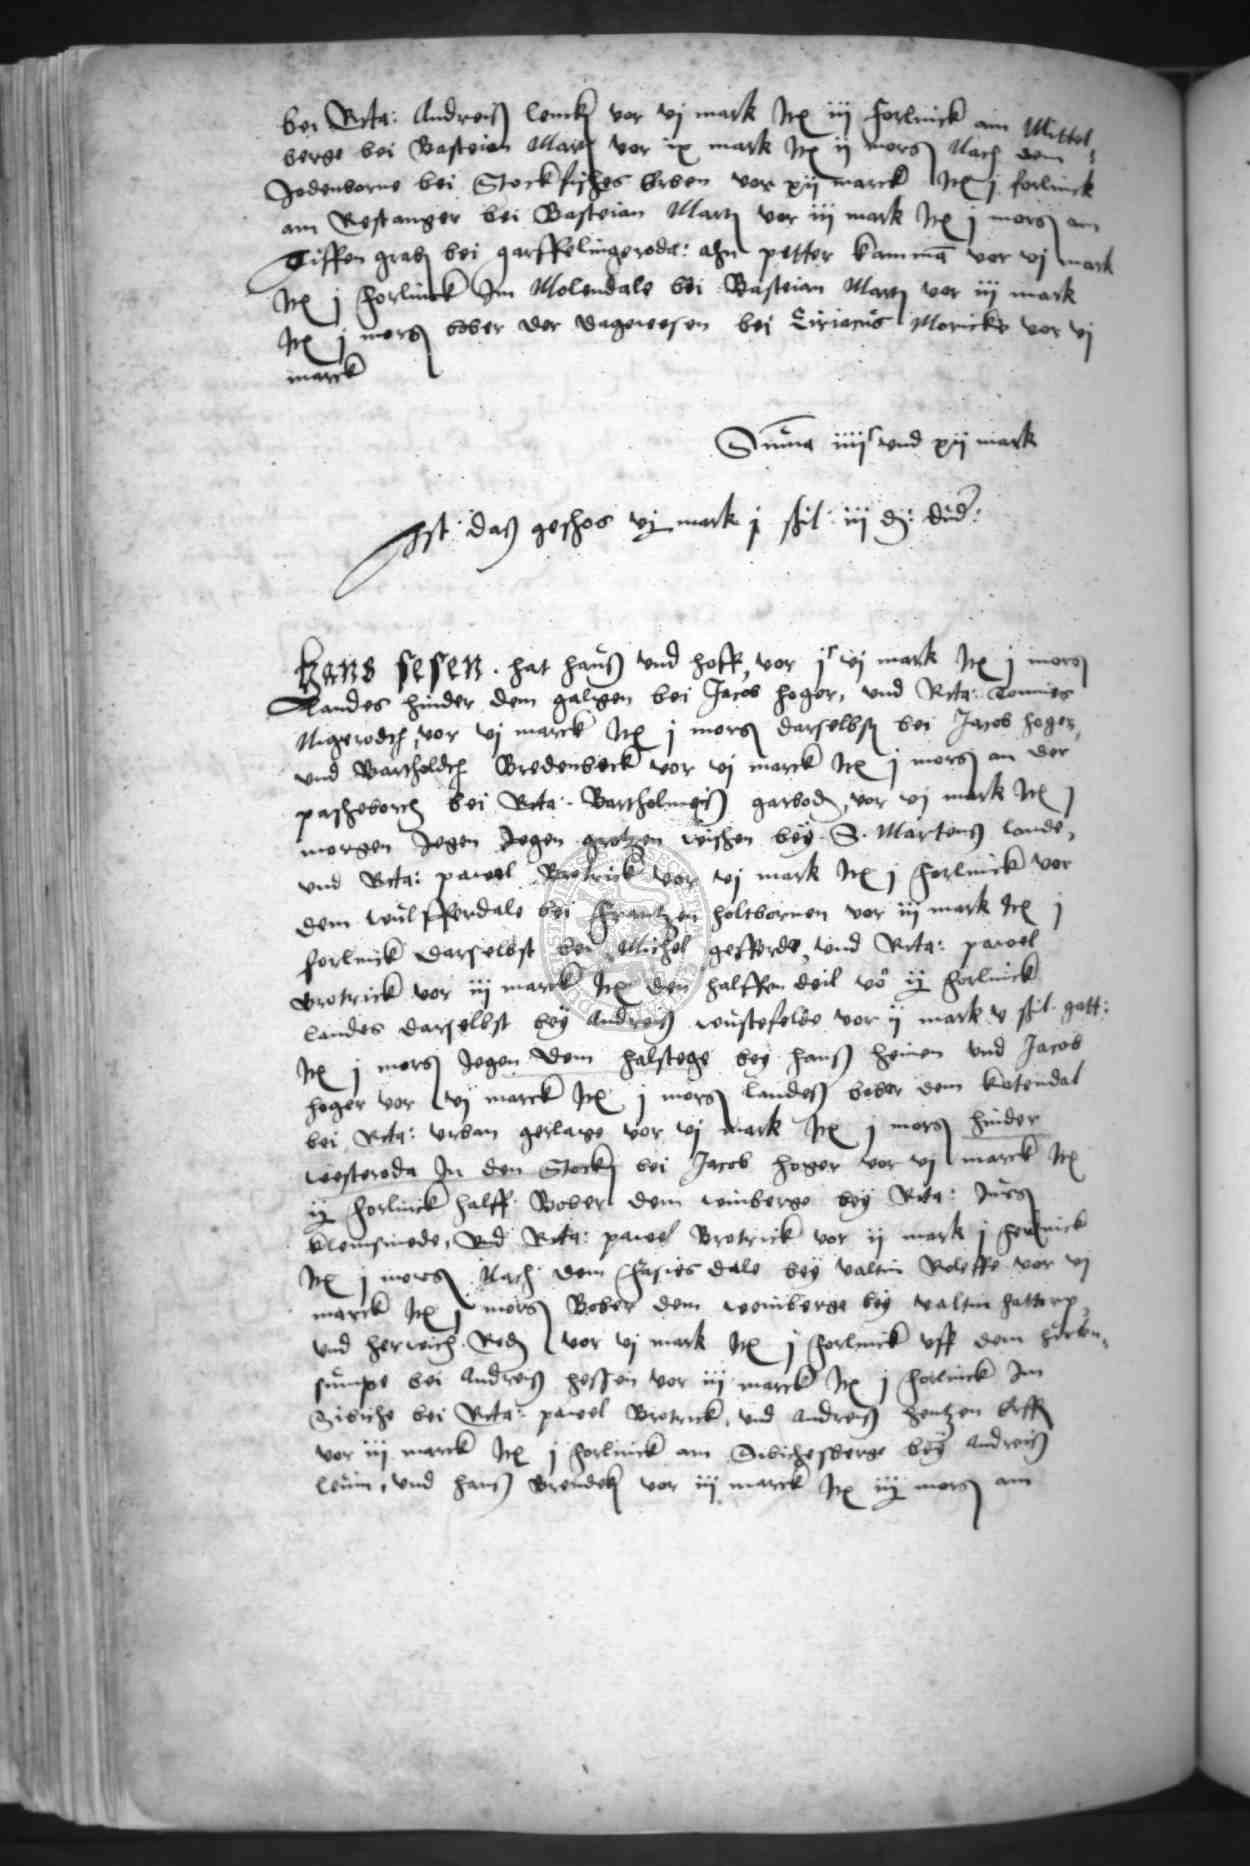 bei Rcta: Andreiß lenck vor vj mark Itē iij Forlinck am Mittel-
berge bei Basteian Martē vor ix mark Itē ij morg Nach dem
Jodenborne bei Stockfisches Erben vor xij marck Itē j forlinck
am Restanger bei Basteian Martē vor iij mark Itē j morg am
Tiffen grabē bei garffelingeroda: ahn petter kammā vor vj mark
Itē j Forlinck Im Molendale bei Basteian Martē vor iij mark
Itē j morg bober der dagewesen bei Ciriacus Moricke vor vj
marck
Suma iiijᶜ vnd xij mark
Ist daß geschos vj mark j ßil: iij d: ded:
Hans sesen. hat hauß vnd hoff, vor jᶜ vj mark Itē j morg
Landes hinder dem galgen bei Jacob hoger, vnd Rcta: Tonnies
Nigerodt, vor vj marck Itē j morg darselbst bei Jacob hoger,
vnd Bartholdt Bredenbeck vor vj marck Itē j morg an der
pascheborch bei Rcta: Bartholmeiß garbod, vor vj mark Itē j
morgen Jegen Jegen grotzen wischen bey S. Martens lande,
vnd Rcta: pawel Brotrick vor vj mark Itē j Forlinck vor
dem wulfferdale bei Frantzen holtbornen vor iij mark Itē j
forlinck darselbst bei Michel gefferde, vnd Rcta: pawel
Brotrick vor iij marck Itē den halffen deil vō ij Forlinck
landes darselbst bey Andreiß wustefelde vor ij mark v ßil. gatt:
Itē j morg Jegen dem halstege bey hanß heinen vnd Jacob
hoger vor vj marck Itē j morg landeß bober dem katendal
bei Rcta: vrban gerlage vor vj mark Itē j morg hinder
westeroda In den Stockē bei Jacob hoger vor vj marck Itē
ij Forlinck halff Bober dem winberge bey Rcta: Jurg
kleinsmede, vnd Rcta: pawel Brotrick vor ij mark j ferlinck
Itē j morg Nach dem Hasies dale bey valtin Roleffe vor vj
marck Itē j morg Bober dem weinberge bey valtin hattorp,
vnd herwich Rodē vor vj mark Itē j Forlinck vff dem
sumpe bei Andreiß hessen vor iij marck Itē j Forlinck Im
Sibiche bei Rcta: pawel Brotrick, vnd Andreiß hentzen
vor iij marck Itē j Forlinck am Sibichesberge bey Andreiß
leum, vnd hanß Brendek vor iij marck Itē iij morg am